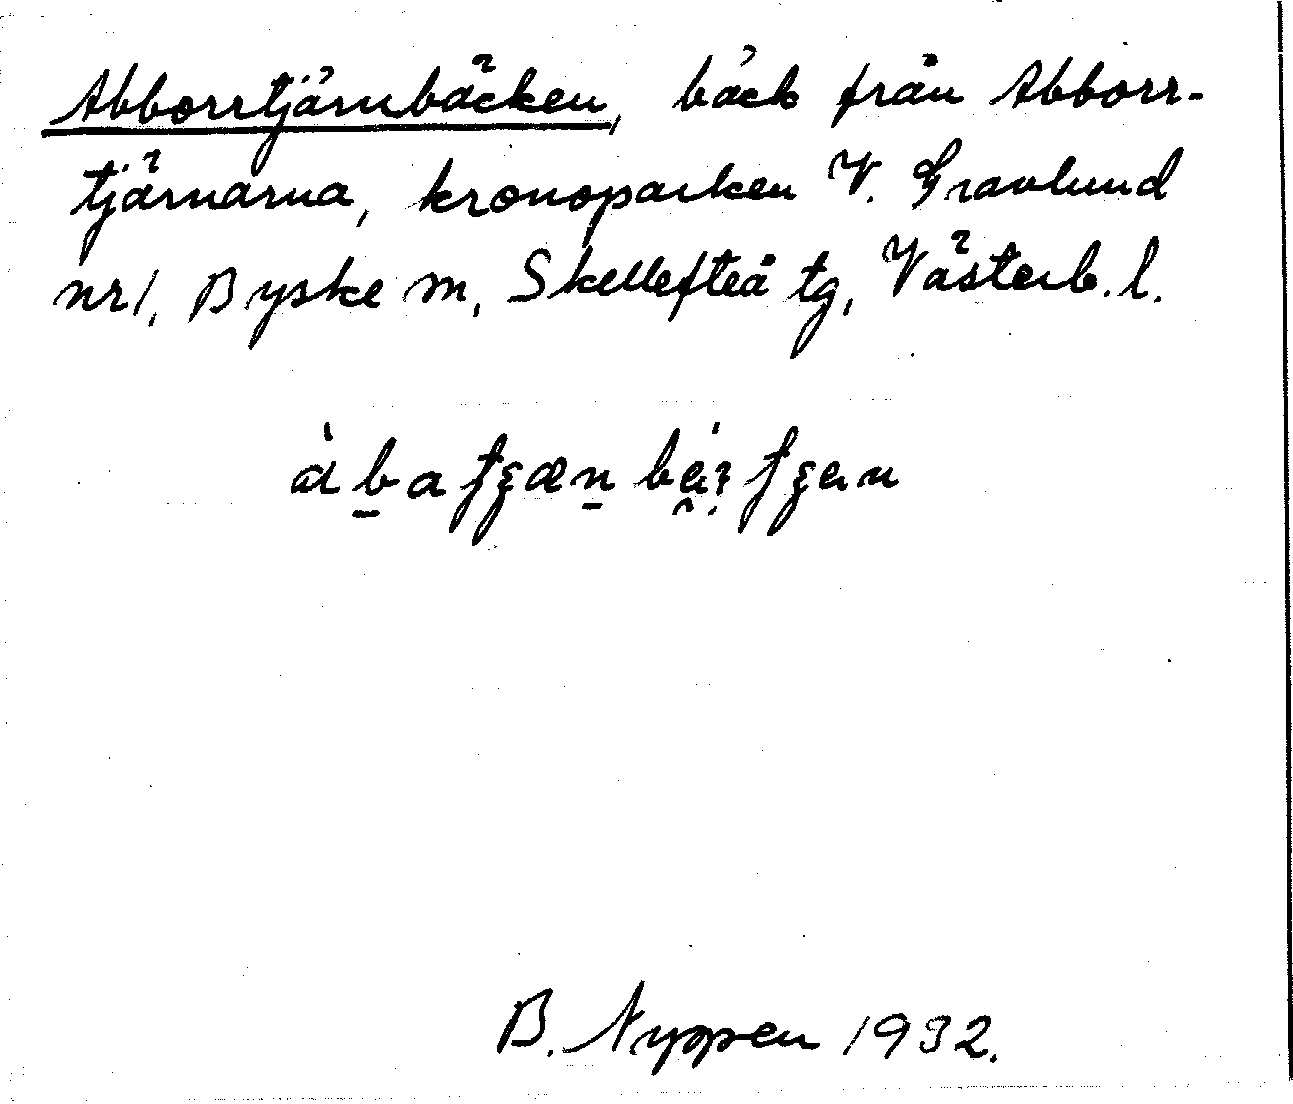 Abborrtjärnbäcken, bäck från Abborr-
tjärnarna, kronoparken V. Gravlund
nr 1, Byske sn, Skellefteå tg, Västerb. l.
B. Nyppen 1932.